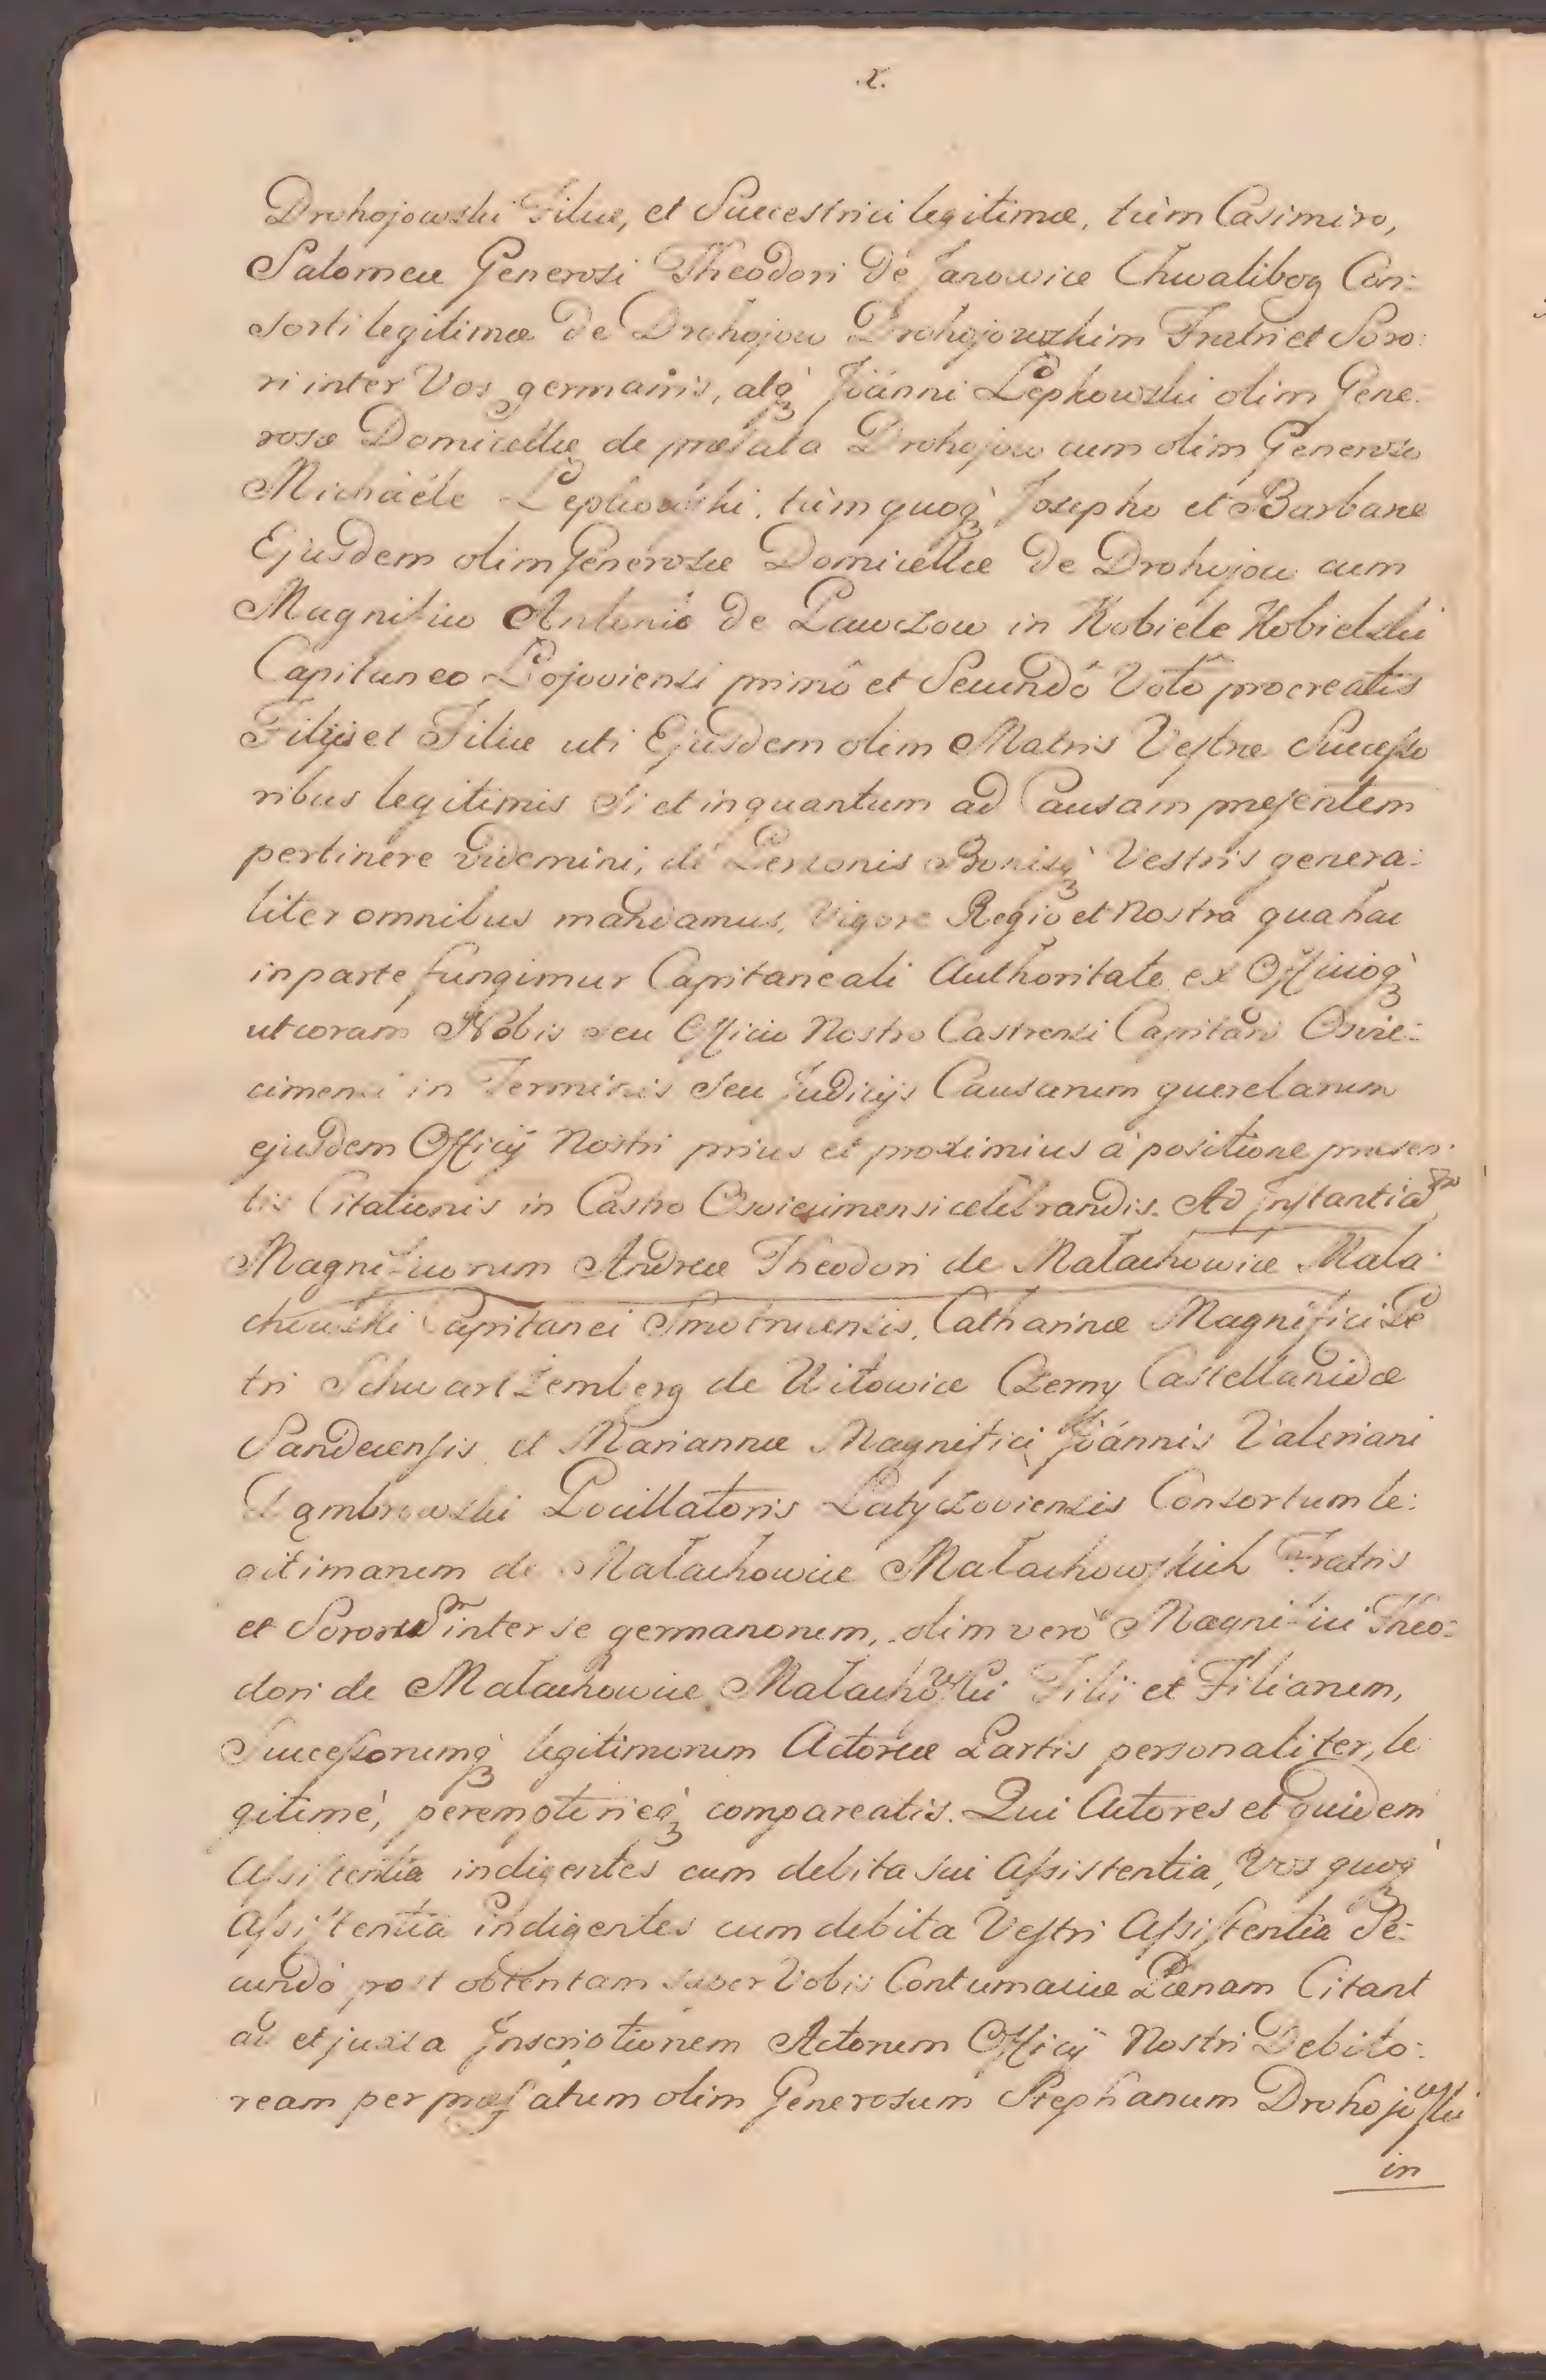 2.
Drohojowski Filiæ, et Succestrici legitimæ, tùm Casimiro,
Salomeæ Generosi Theodori de Janowice Chwalibog Con:
sorti legitimæ de Drohojow Drohojowskim Fratri et Soro:
ri inter Vos germanis, atq̀ Joánni Lepkowski olim Gene:
rosæ Domicellæ de præfata Drohojow cum olim Generoso
Michaéle Lepkowski, tùm quoq̀ Josepho et Barbaræ
Ejusdem olim Generosæ Domicellæ de Drohojow cum
Magnifico Antonio de Pawczow in Kobiele Kobielski
Capitaneo Lojoviensi primô et Secundô Votô procreatis
Filijs et Filiæ uti Ejusdem olim Matris Vestræ Successo
ribus legitimis Si et inquantum ad Causam præsentem
pertinere videmini, de Personis Bonisq̀ Vestris genera:
liter omnibus mandamus, Vigore Regio et Nostra qua hac
in parte fungimur Capitaneali Authoritate ex Officioq̀
ut coram Nobis seu Officio Nostro Castrensi Capitan Oswie:
cimensi in Terminis seu Judicijs Causarum querelarum
ejusdem Officij Nostri prius et proximius à positione præsen:
tis Citationis in Castro Oswiecimensi celebrandis. Ad Instantiam
Magnificorum Andreæ Theodori de Małachowice Mała:
chowski Capitanei Smotrycensis, Catharinæ Magnifici Pe
tri Schwartzemberg de Witowice Czerny Castellanidæ
Sandecensis et Mariannæ Magnifici Joánnis Valeriani
Dąmbrowski Pocillatoris Latyczoviensis Consortum le:
gitimarum de Małachowice Małachowskich Fratris
et Sororum inter se germanorum, olim verò Magnifici Theo:
dori de Małachowice Małachowski Filij et Filiarum,
Successorumq̀ legitimorum Actoreæ Partis personaliter, le
gitimè, peremptorieq̀ compareatis. Qui Actores et quidem
Assistentia indigentes cum debita sui Assistentia, Vos quoq̀
Assistentia indigentes cum debita Vestri Assistentia Se:
cundò post obtentam super Vobis Contumaciæ Pœnam Citant
ad et juxta Inscriptionem Actorum Officij Nostri Debito:
ream per præfatum olim Generosum Stephanum Drohojowski
in